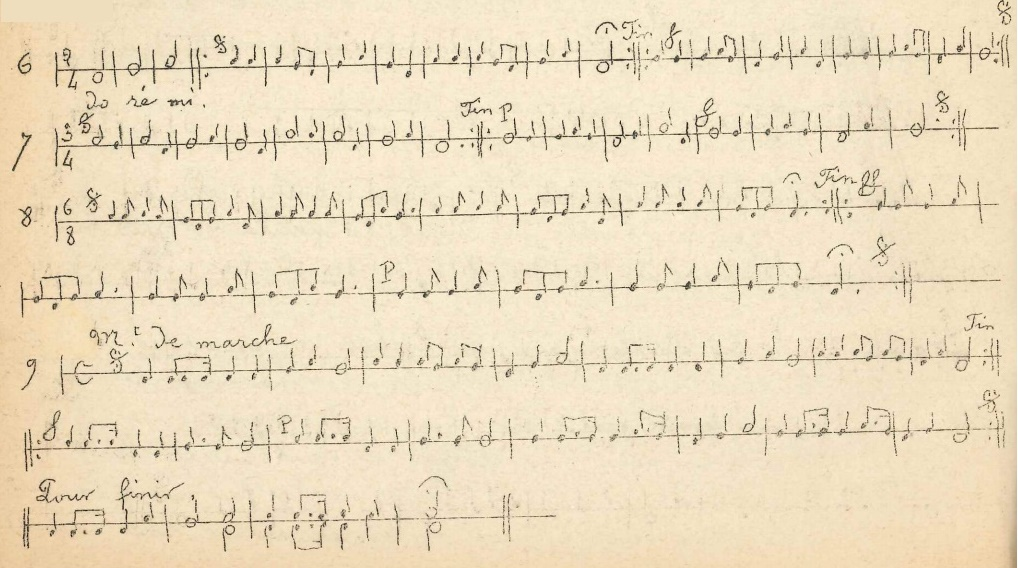 6 2/4 Fin f
do ré mi.
7 3/4 Fin P f
8 6/8 Fin ff
P
Mt. de marche
9 C Fin
f P
Pour finir.